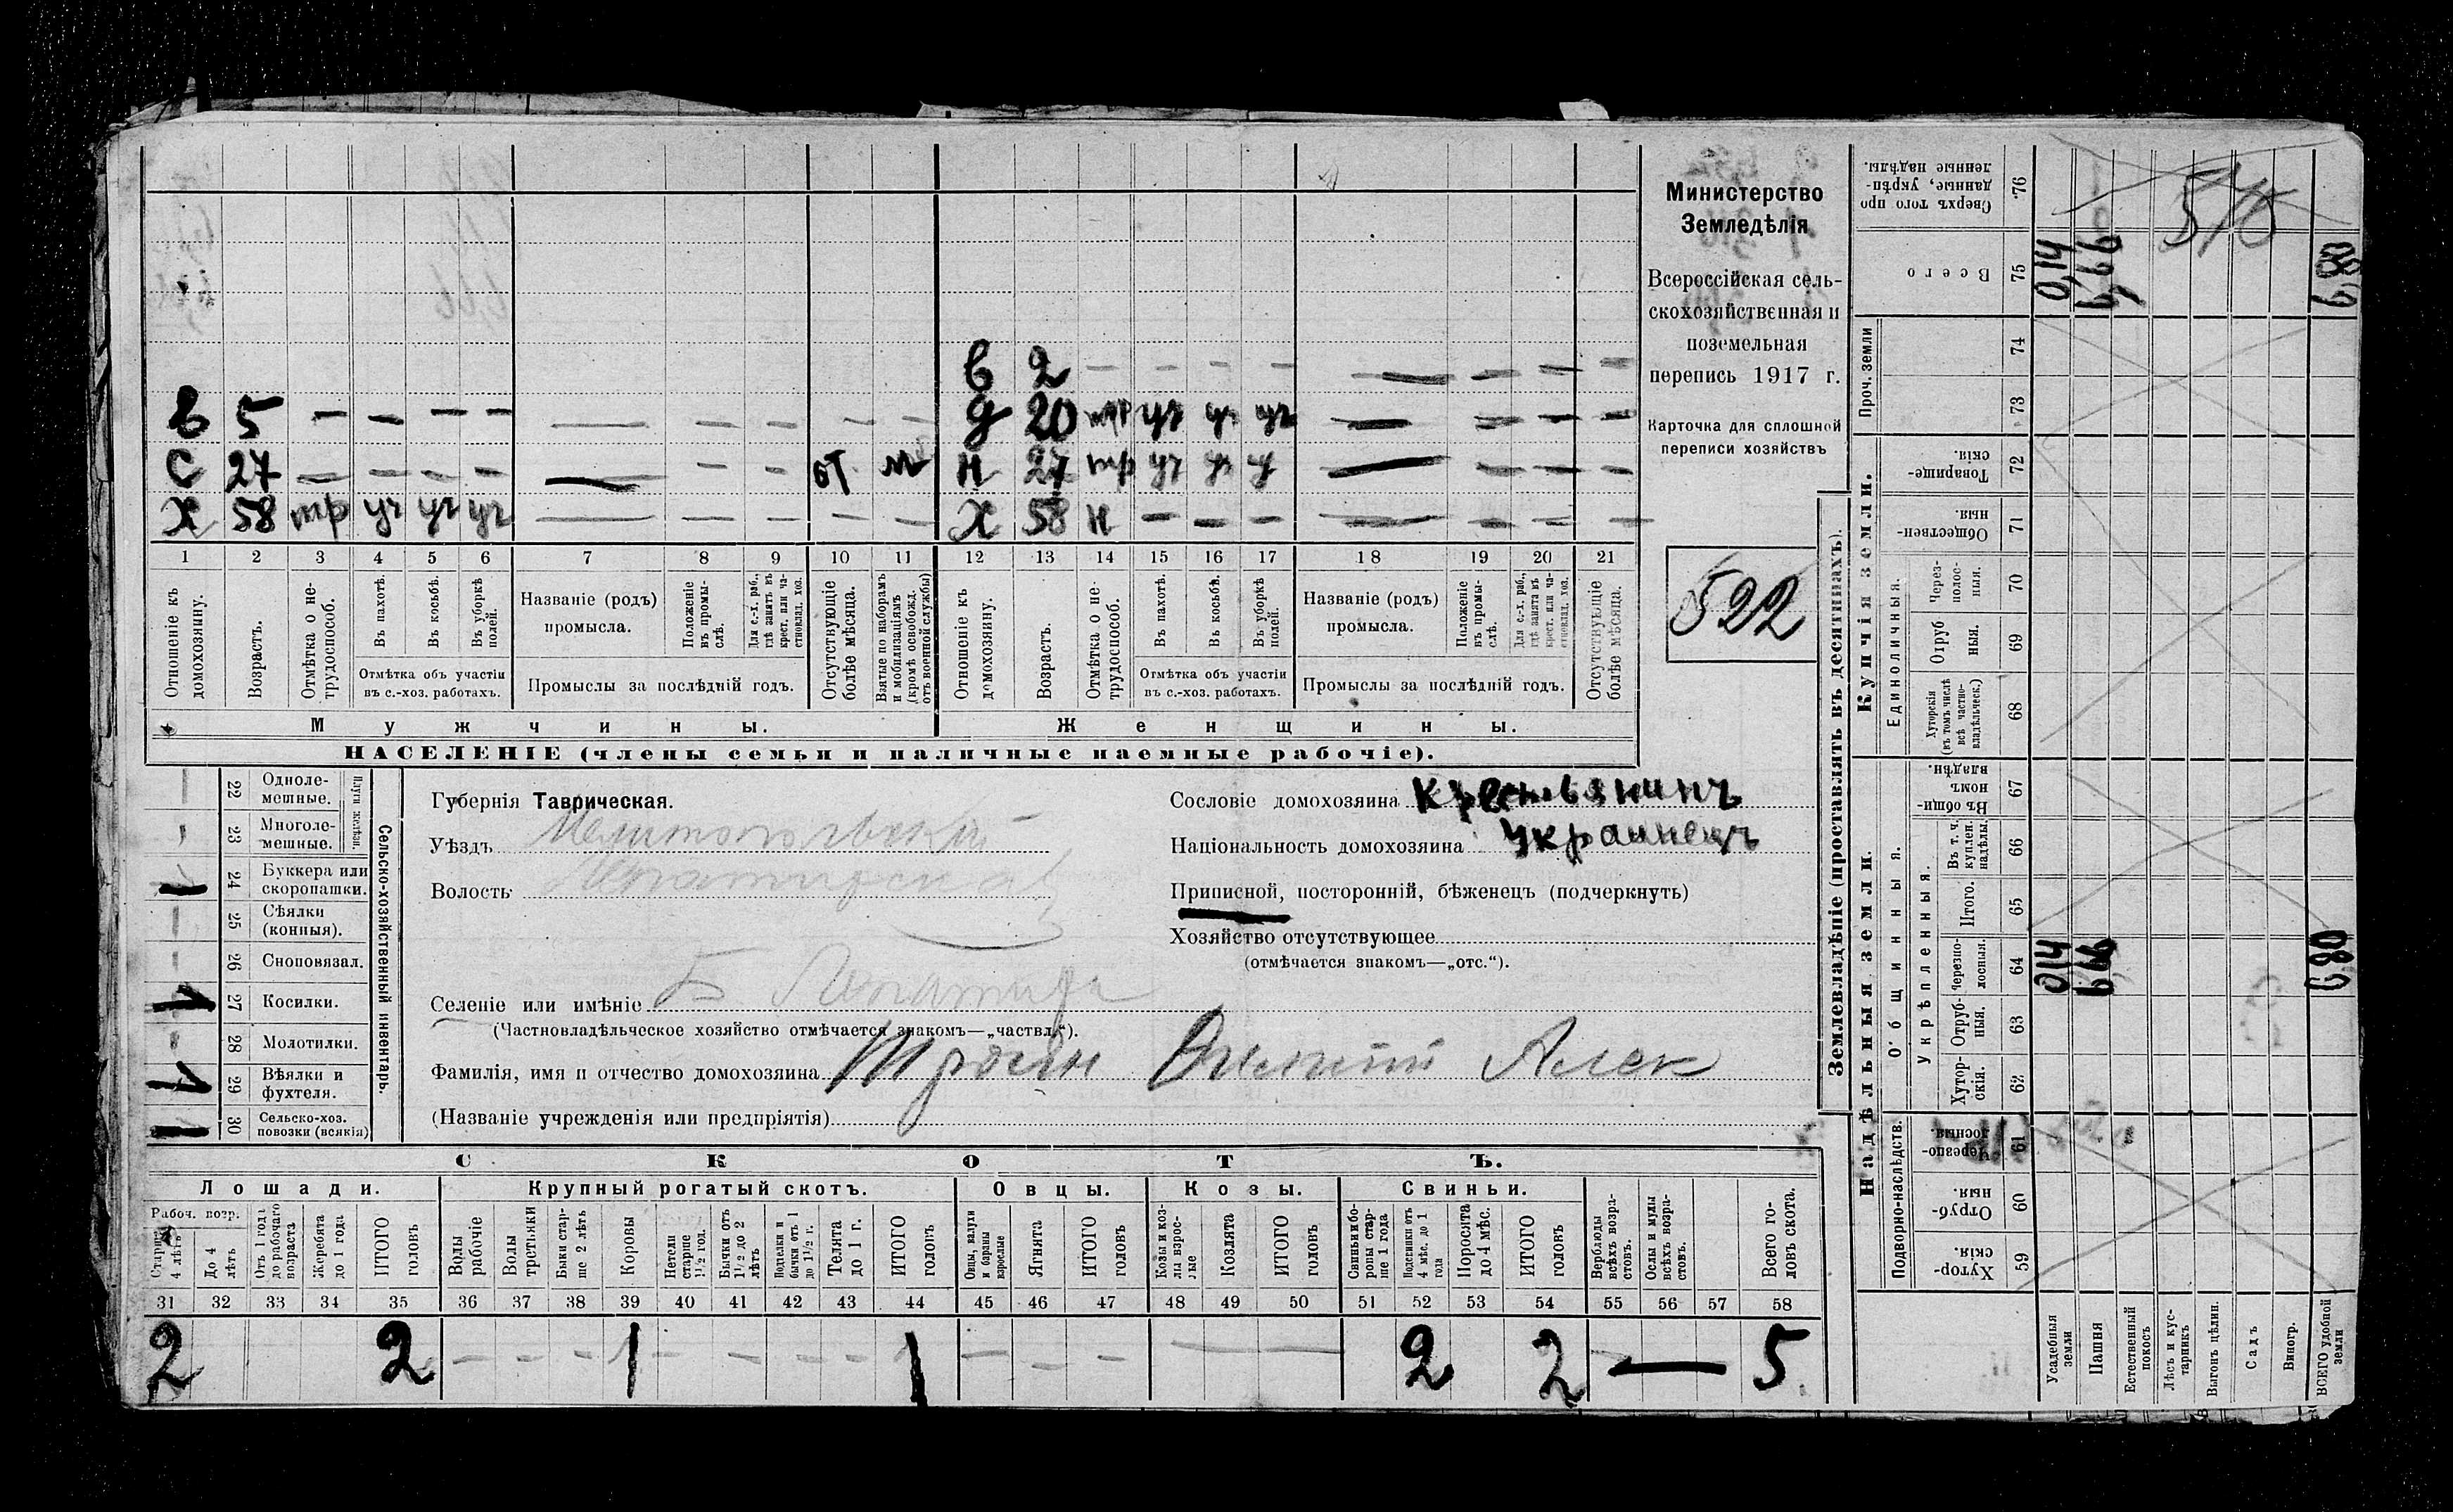 в 2 — — — — — — — —
в 5 — — — — — — — — —
д 20 тр уч уч уч — — — —
С 27 — — — — — — — от м
н 27 тр уч уч у — — — —
Х 58 тр уч уч уч — — — — —
Х 58 н — — — — — — —
1 2 3 4 5 6 7 8 9 10 11 12 13 14 15 16 17 18 19 20 21
Отношеніе къ домохозяину.
Возрастъ.
Отмѣтка о не-
трудоспособ.
Въ пахотѣ.
Въ косьбѣ.
Въ уборкѣ полей.
Отмѣтка объ участіи
въ с.-хоз. работахъ.
Названіе (родъ)
промысла.
Положеніе въ промы-
слѣ.
Для с.-х. раб., гдѣ занятъ въ крест. или ча-
стновлад. хоз.
Промыслы за послѣдній годъ.
Отсутствующіе болѣе мѣсяца.
Взятые по наборамъ и мобилизаціямъ (кромѣ освобожд. отъ военной службы)
Отношеніе къ домохозяину.
Возрастъ.
Отмѣтка о не-
трудоспособ.
Въ пахотѣ.
Въ косьбѣ.
Въ уборкѣ полей.
Отмѣтка объ участіи
въ с.-хоз. работахъ.
Названіе (родъ)
промысла.
Положеніе въ промы-
слѣ.
Для с.-х. раб., гдѣ занята въ крест. или ча-
стновлад. хоз.
Промыслы за послѣдній годъ.
Отсутствующіе болѣе мѣсяца.
Мужчины.
Женщины.
НАСЕЛЕНІЕ (члены семьи и наличные наемные рабочіе).
Министерство
Земледѣлія
Всероссійская сель-
скохозяйственная и
поземельная
перепись 1917 г.
Карточка для сплошной
переписи хозяйствъ
522
Сельско-хозяйственный инвентарь.
22 Одноле-
мешные.
23 Многоле-
мешные.
24 Буккера или
скоропашки.
1
25 Сѣялки
(конныя).
26 Сноповязал.
27 Косилки.
1
28 Молотилки.
29 Вѣялки и
фухтеля.
1
30 Сельско-хоз.
повозки (всякія)
1
Губернія Таврическая.
Уѣздъ Мелитопольский
Волость
Селеніе или имѣніе
(Частновладѣльческое хозяйство отмѣчается знакомъ—„частвл.“).
Фамилія, имя и отчество домохозяина Троян Алек
(Названіе учрежденія или предпріятія)
Сословіе домохозяина Крестьянинъ
Національность домохозяина Украинецъ
Приписной, посторонній, бѣженецъ (подчеркнуть)
Хозяйство отсутствующее
(отмѣчается знакомъ—„отс.“).
СКОТЪ.
Лошади.
Крупный рогатый скотъ.
Овцы.
Козы.
Свиньи.
Рабоч. возр.
Старше 4 лѣтъ
До 4 лѣтъ
Отъ 1 года до рабочаго возраста
Жеребята до 1 года
ИТОГО головъ
Волы рабочіе
Волы третьяки
Быки стар-
ше 2 лѣтъ
Коровы
Нетели старше 1½ год.
Бычки отъ 1½ до 2 лѣтъ
Подтелки и бычки отъ 1 до 1½ г.
Телята до 1 г.
ИТОГО головъ
Овцы, валухи и бараны взрослые
Ягнята
ИТОГО головъ
Козы и коз-
лы взрос-
лые
Козлята
ИТОГО головъ
Свиньи и бо-
ровы стар-
ше 1 года
Подсвинки отъ 4 мѣс. до 1 года
Поросята до 4 мѣс.
ИТОГО головъ
Верблюды всѣхъ возра-
стовъ.
Ослы и мулы всѣхъ возра-
стовъ.
Всего го-
ловъ скота.
31 32 33 34 35 36 37 38 39 40 41 42 43 44 45 46 47 48 49 50 51 52 53 54 55 56 57 58
2 2 — — — 1 — — — — 1 — — — — — 2 2 — 5
Землевладѣніе (проставлять въ десятинахъ).
Купчія земли.
Надѣльныя земли.
Сверхъ того про
данные, укрѣп-
ленные надѣлы.
76
Всего
75
0,14
6,66
6,80
Проч. земли
74
73
Товарище-
скія.
72
Обществен-
ныя.
71
Единоличныя.
Через-
полос-
ныя.
70
Отруб
ныя.
69
Хуторскія
(въ томъ числѣ всѣ частно-
владѣльческ.)
68
Общинныя.
Въ общин-
номъ владѣн.
67
Укрѣпленныя.
Въ т. ч. куплен. надѣлы.
66
Итого.
65
Черезпо-
лосныя.
64
0,14
6,66
6,80
Отруб-
ныя.
63
Хутор-
скія.
62
Подворно-наслѣдств.
Черезпо-
лосныя.
61
Отруб-
ныя.
60
Хутор-
скія.
59
Усадебныя земли
Пашня
Естественный покосъ
Лѣсъ и кус-
тарникъ
Выгонъ цѣлин.
Садъ
Виногр.
ВСЕГО удобной земли